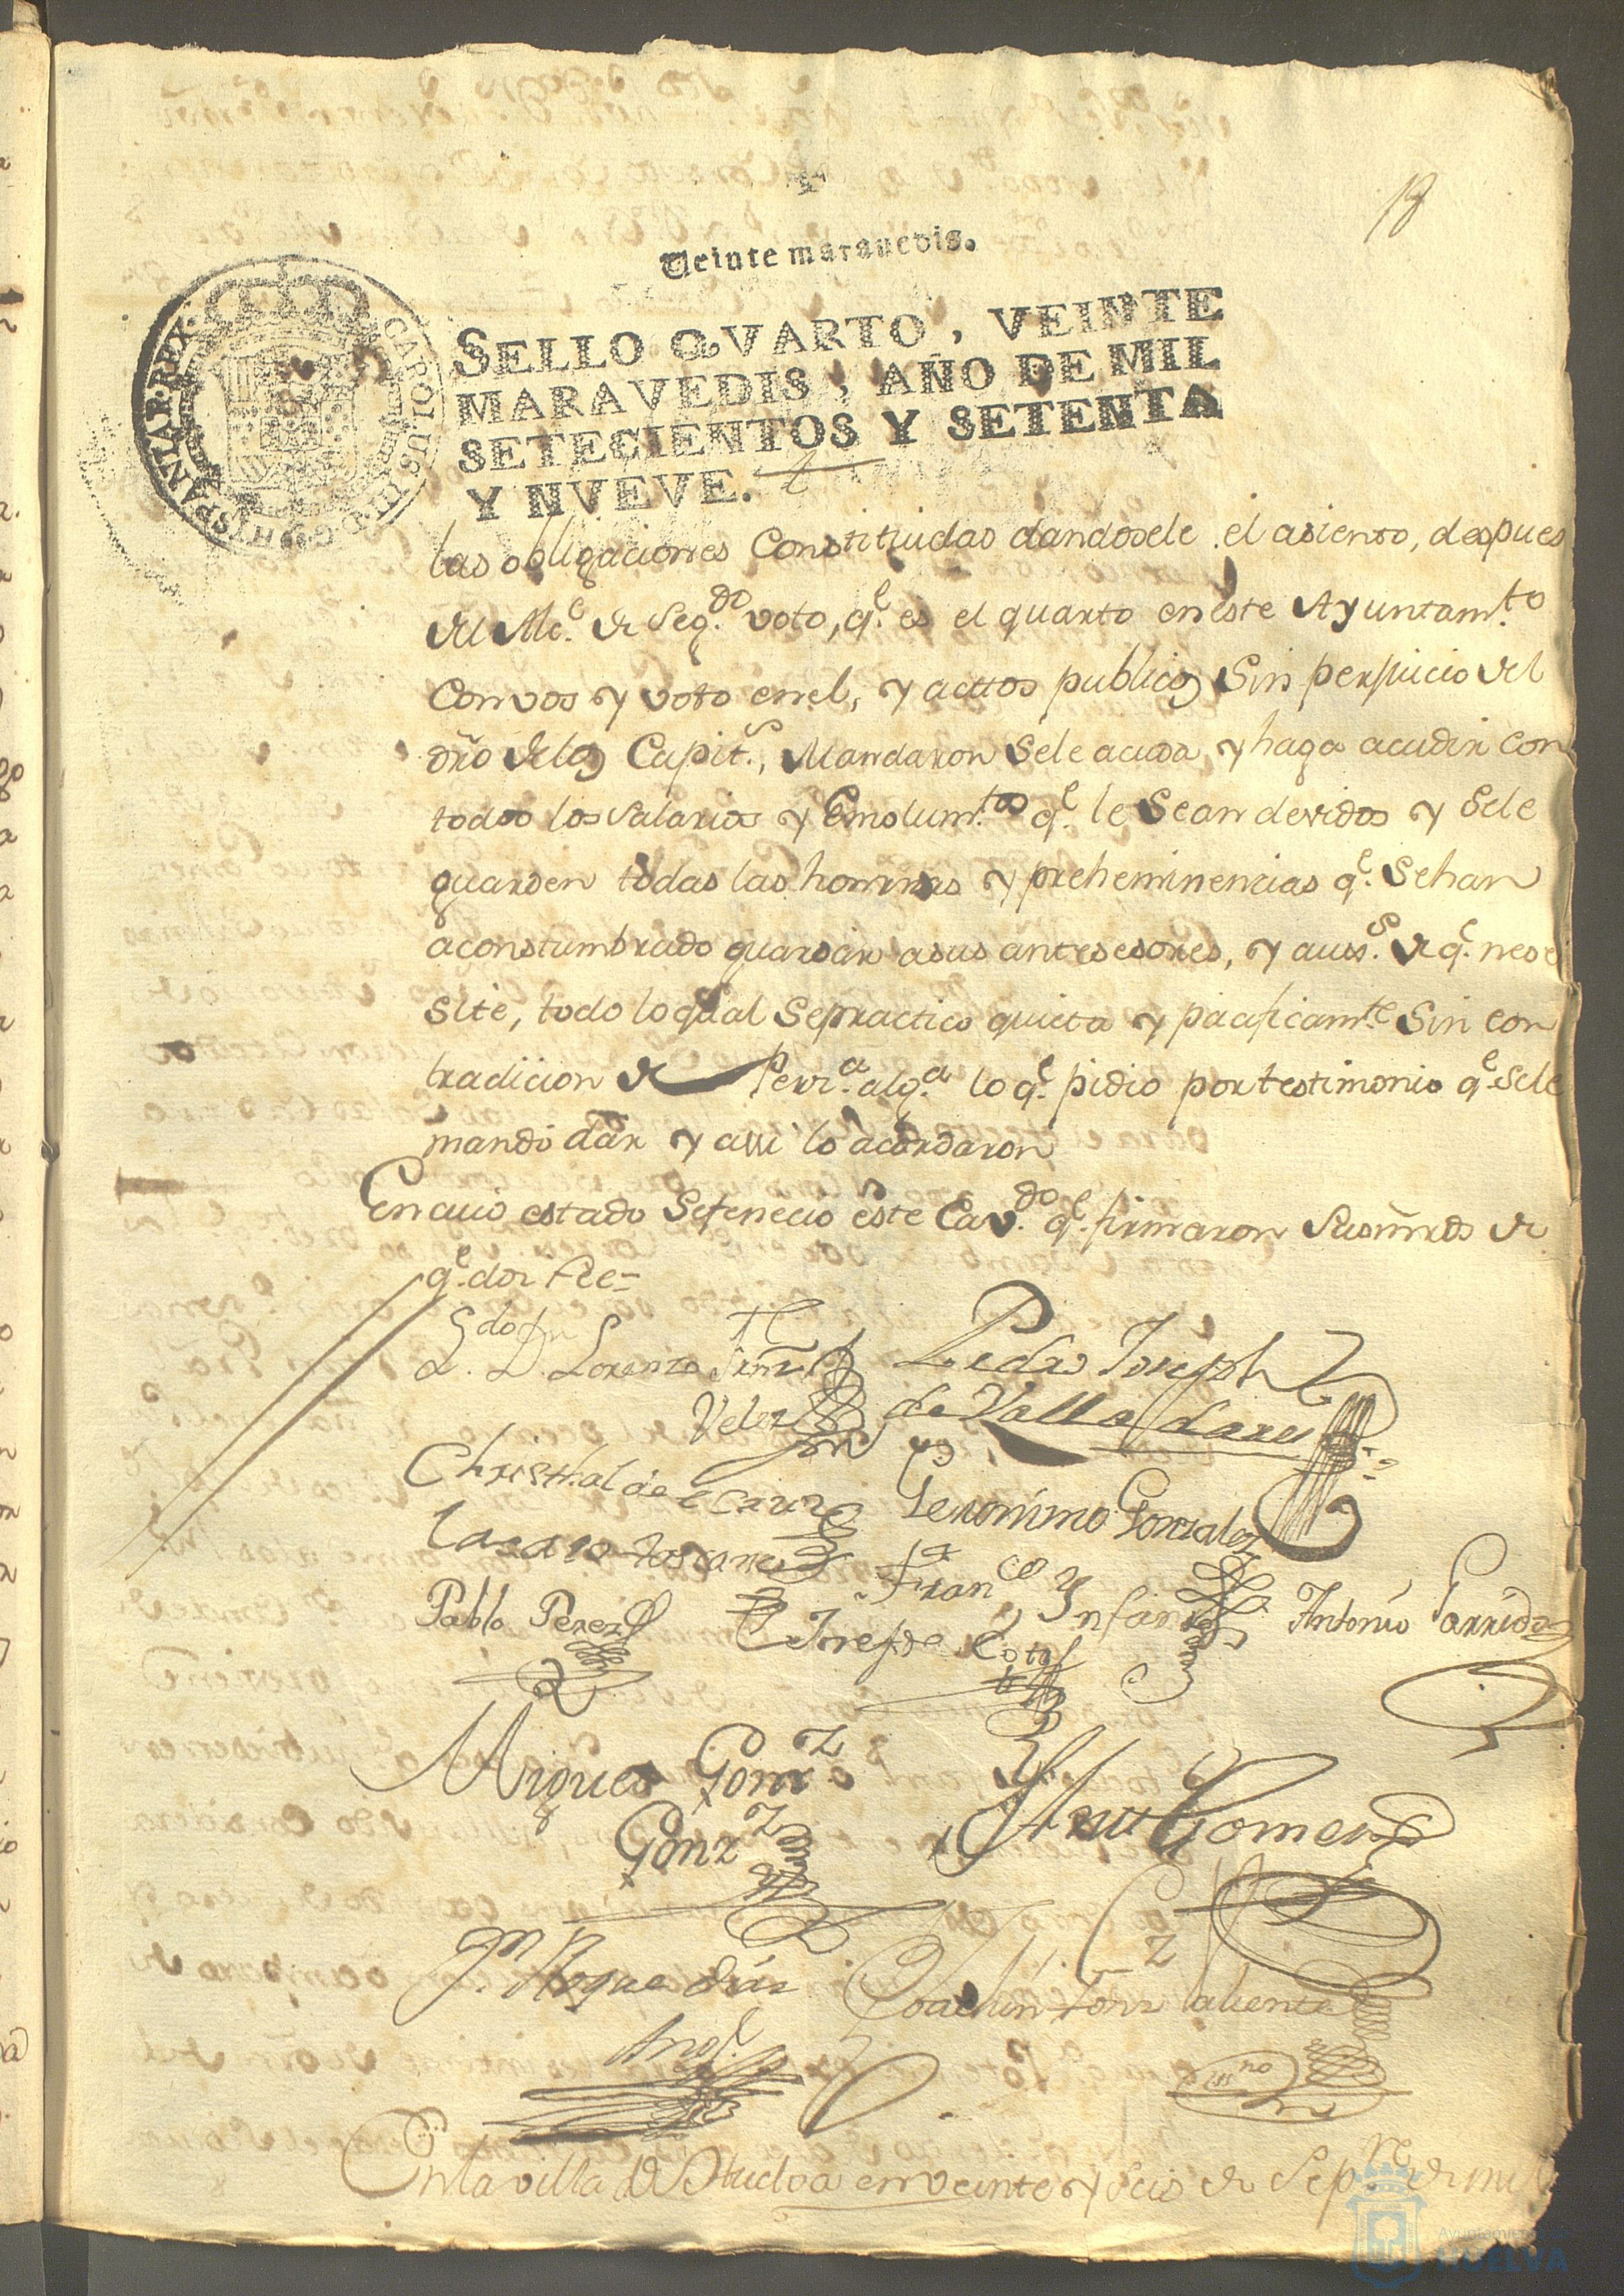 18
Veinte maravedis.
CAROLUS III D G HISPANIAR REX
SELLO QVARTO, VEINTE
MARAVEDIS, AÑO DE MIL
SETECIENTOS Y SETENTA
Y NVEVE.
las obligaciones Constituidas dandosele el asiento, despues
del Alc.e de Seg.do voto, q.e es el quarto en este Ayuntam.to
Con vos y voto en el, y actos publicos Sin perjuicio del
dro. de los Capit.s, Mandaron Sele acuda, y haga acudir con
todos los Salarios y Emolum.tos q.e le Sean devidos y Sele
guarden todas las honrras y preheminencias q.e Sehan
aconstumbrado guardar asus antesesores, y auss.s de q.e nese
site, todo loqual Sepractico quieta y pacificam.te Sin con
tradicion de Perz.a alg.a lo q.e pidio por testimonio q.e Sele
mandó dar y assi lo acordaron
En cuio estado Sefenecio este Cav.do q.e firmaron Susmrds de
q.e doi Fee=
L.do D.n Lorenzo
Velez
Pedro Joseph
de Valladares
Christhal de
Geronimo Gonzalez
Lazaro toscano
Fran.co Infante
Antonio Garrido
Pablo Perez
Josefde Cota
Miguel Gonz.z
Gonz.z
Gomez
J.n Roque Diaz
Joachin Gonz Caliente
En la villa de Huelva en veinte y seis de Sep.re de mil
Ayuntamiento de
HUELVA